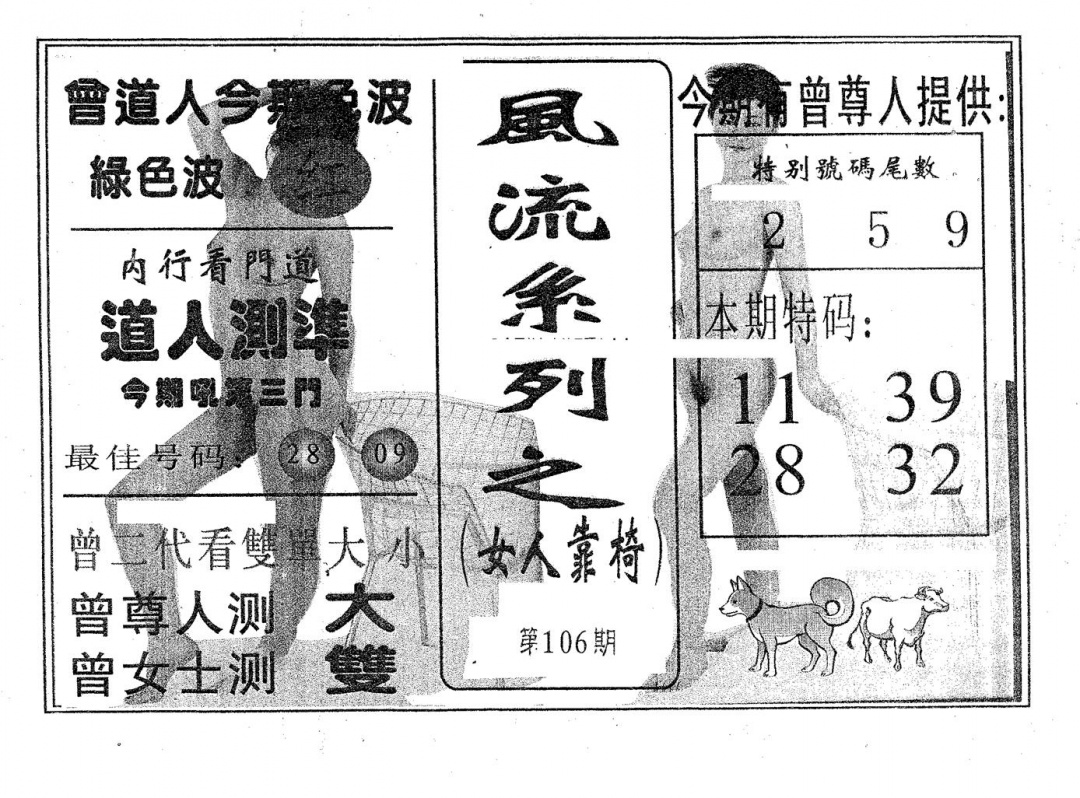 曾道人今期色波
綠色波
紅
內行看門道
道人測準
今期吼實三門
最佳号码: 28 09
曾二代看雙單大小
曾尊人测 大
曾女士测 雙
風流系列之
(女人靠椅)
第106期
今期有曾尊人提供:
特别號碼尾數
2 5 9
本期特码:
11 39
28 32